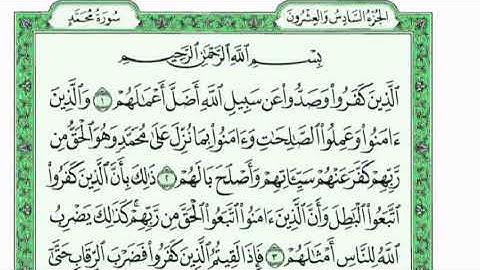 الجزء السادس والعشرون
سورة محمد
بِسْمِ اللَّهِ الرَّحْمَٰنِ الرَّحِيمِ
الَّذِينَ كَفَرُوا۟ وَصَدُّوا۟ عَن سَبِيلِ اللَّهِ أَضَلَّ أَعْمَٰلَهُمْ ١ وَالَّذِينَ
ءَامَنُوا۟ وَعَمِلُوا۟ الصَّٰلِحَٰتِ وَءَامَنُوا۟ بِمَا نُزِّلَ عَلَىٰ مُحَمَّدٍ وَهُوَ الْحَقُّ مِن
رَّبِّهِمْ كَفَّرَ عَنْهُمْ سَيِّـَٔاتِهِمْ وَأَصْلَحَ بَالَهُمْ ٢ ذَٰلِكَ بِأَنَّ الَّذِينَ كَفَرُوا۟
اتَّبَعُوا۟ الْبَٰطِلَ وَأَنَّ الَّذِينَ ءَامَنُوا۟ اتَّبَعُوا۟ الْحَقَّ مِن رَّبِّهِمْ ۚ كَذَٰلِكَ يَضْرِبُ
اللَّهُ لِلنَّاسِ أَمْثَٰلَهُمْ ٣ فَإِذَا لَقِيتُمُ الَّذِينَ كَفَرُوا۟ فَضَرْبَ الرِّقَابِ حَتَّىٰ